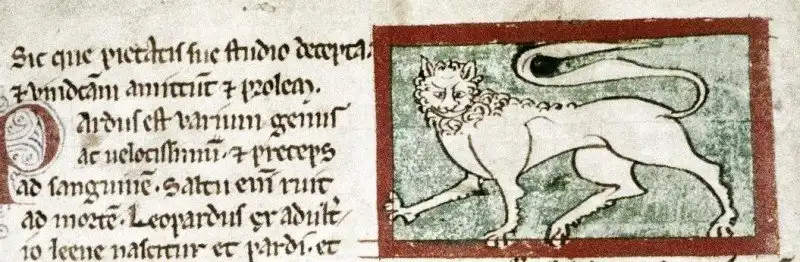 Sic que pietatis sue studio decepta.
⁊ vindcãm amittũt ⁊ prolem.
Pardus est varium genus
ac velocissimũ ⁊ preceps
ad sanguinẽ. Saltu enĩ ruit
ad mortẽ. Leopardus ex adult̾
io leene nascitur et pardi. et